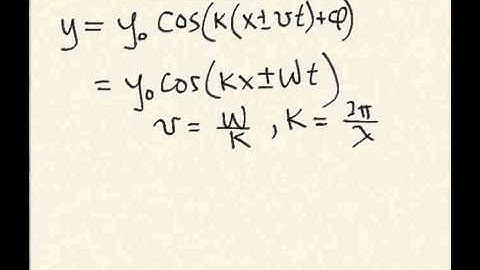 y = y₀ cos(k(x±vt)+φ)
= y₀ cos(kx±wt)
v = w/k , k = 2π/λ